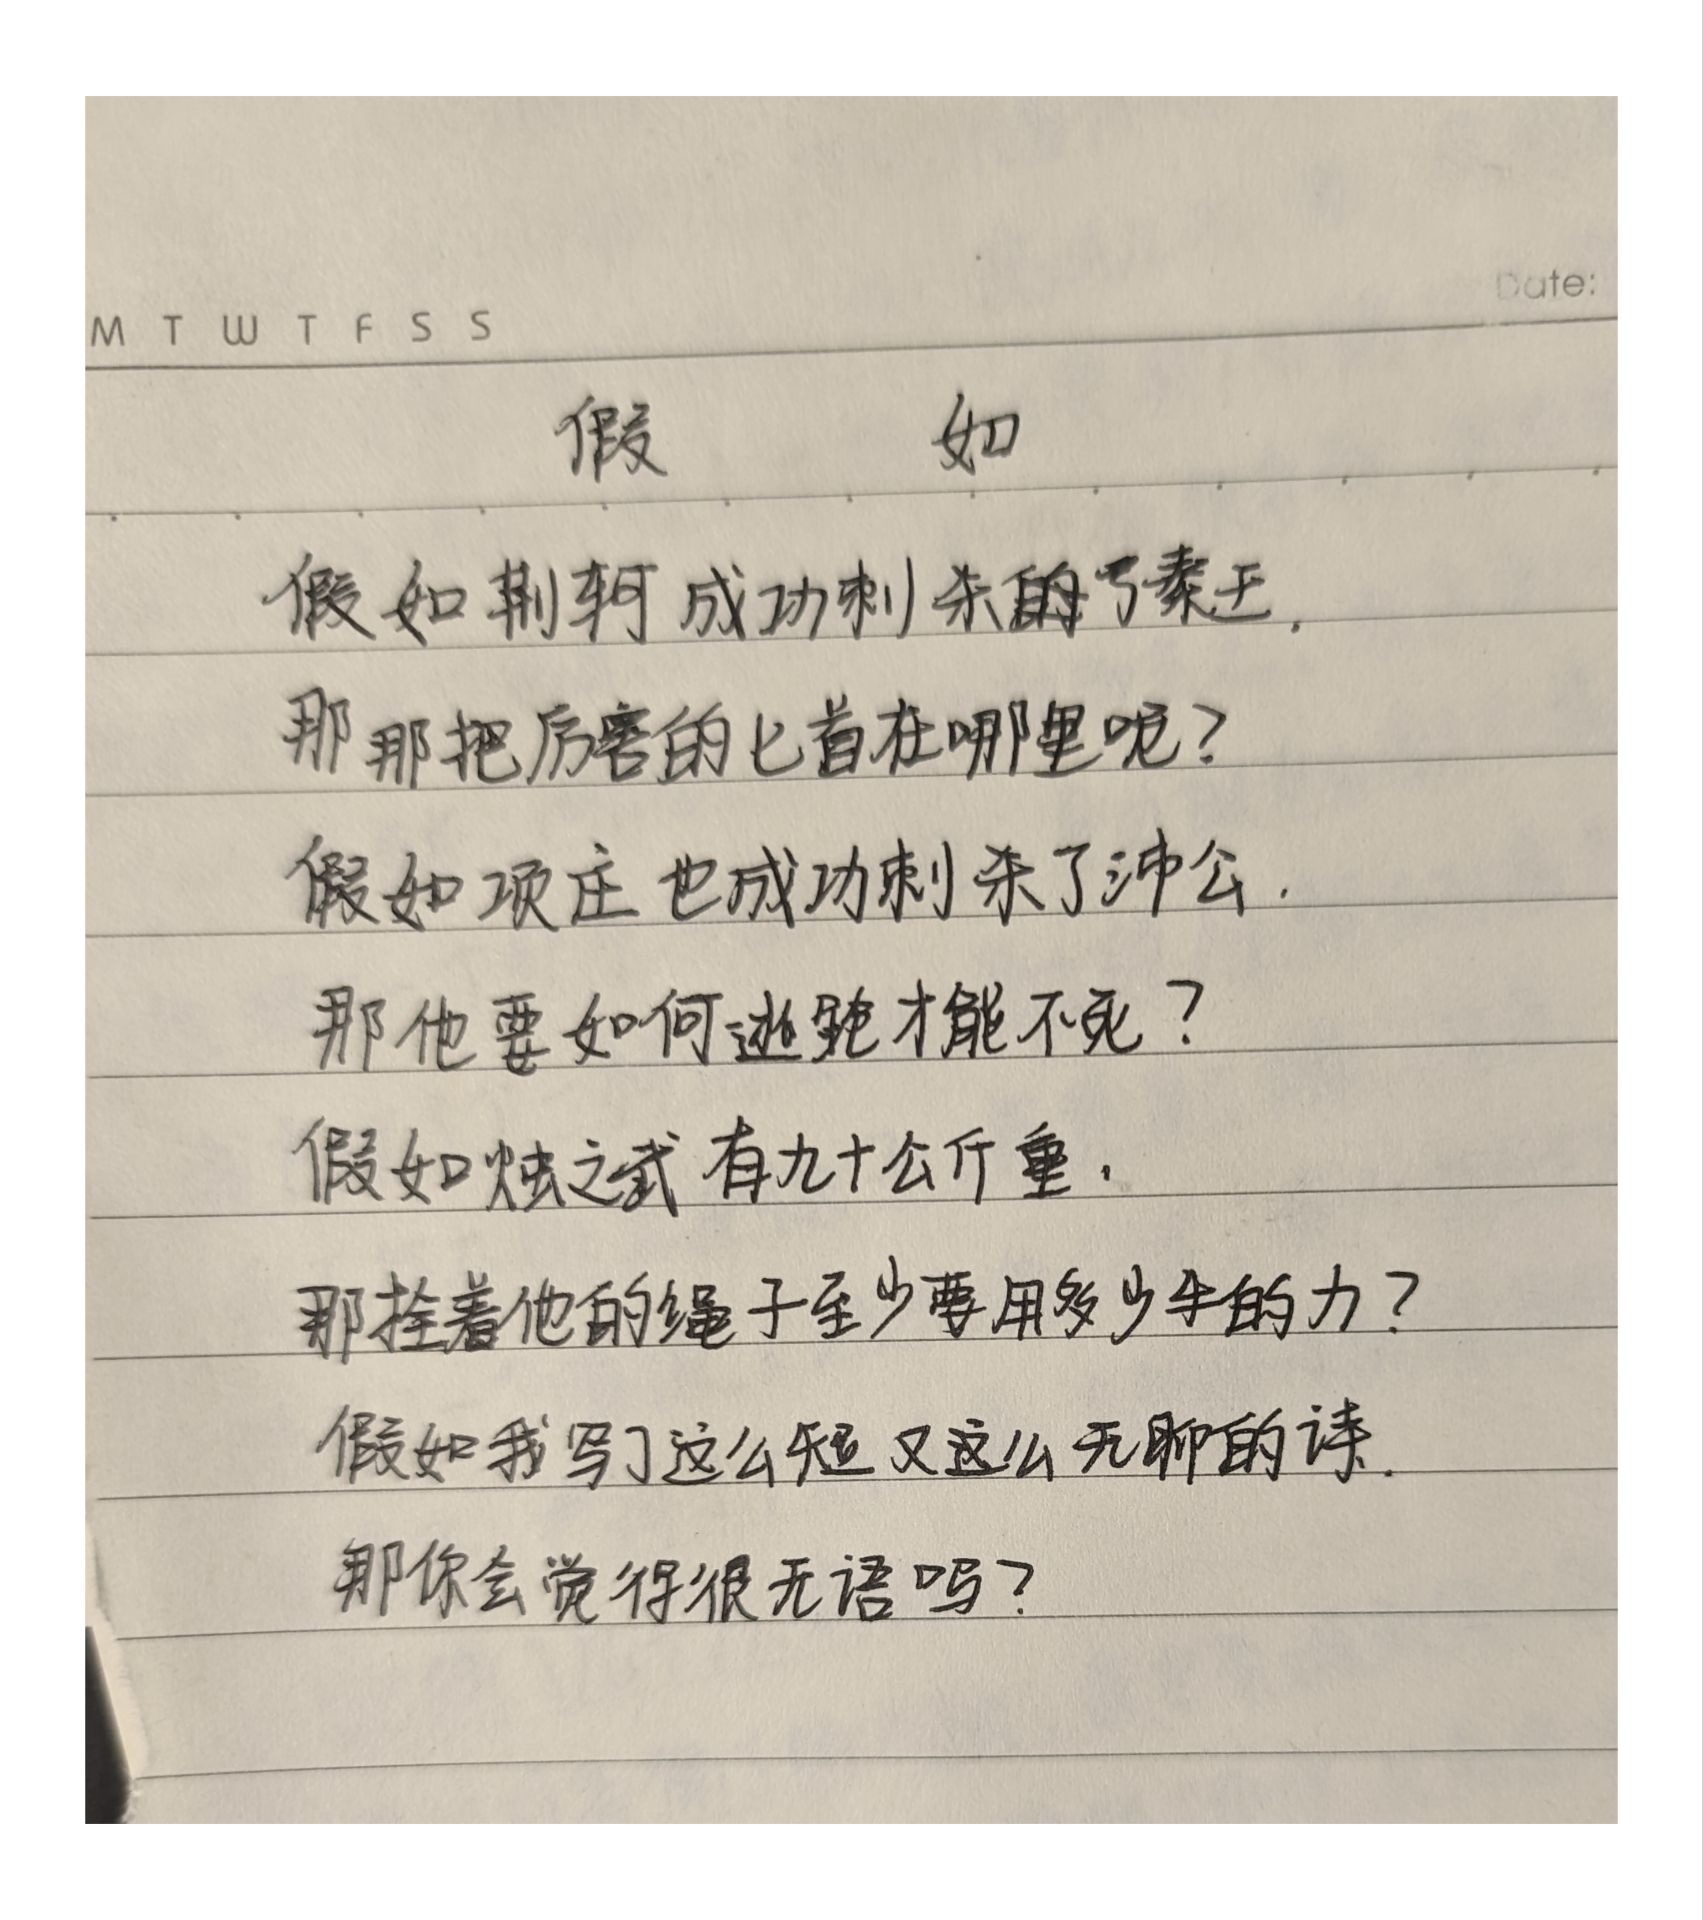 M T W T F S S
Date:
假 如
假如荆轲成功刺杀的了秦王.
那那把厉害的匕首在哪里呢?
假如项庄也成功刺杀了沛公.
那他要如何逃跑才能不死?
假如烛之武有九十公斤重.
那拴着他的绳子至少要用多少牛的力?
假如我写了这么短又这么无聊的诗.
那你会觉得很无语吗?